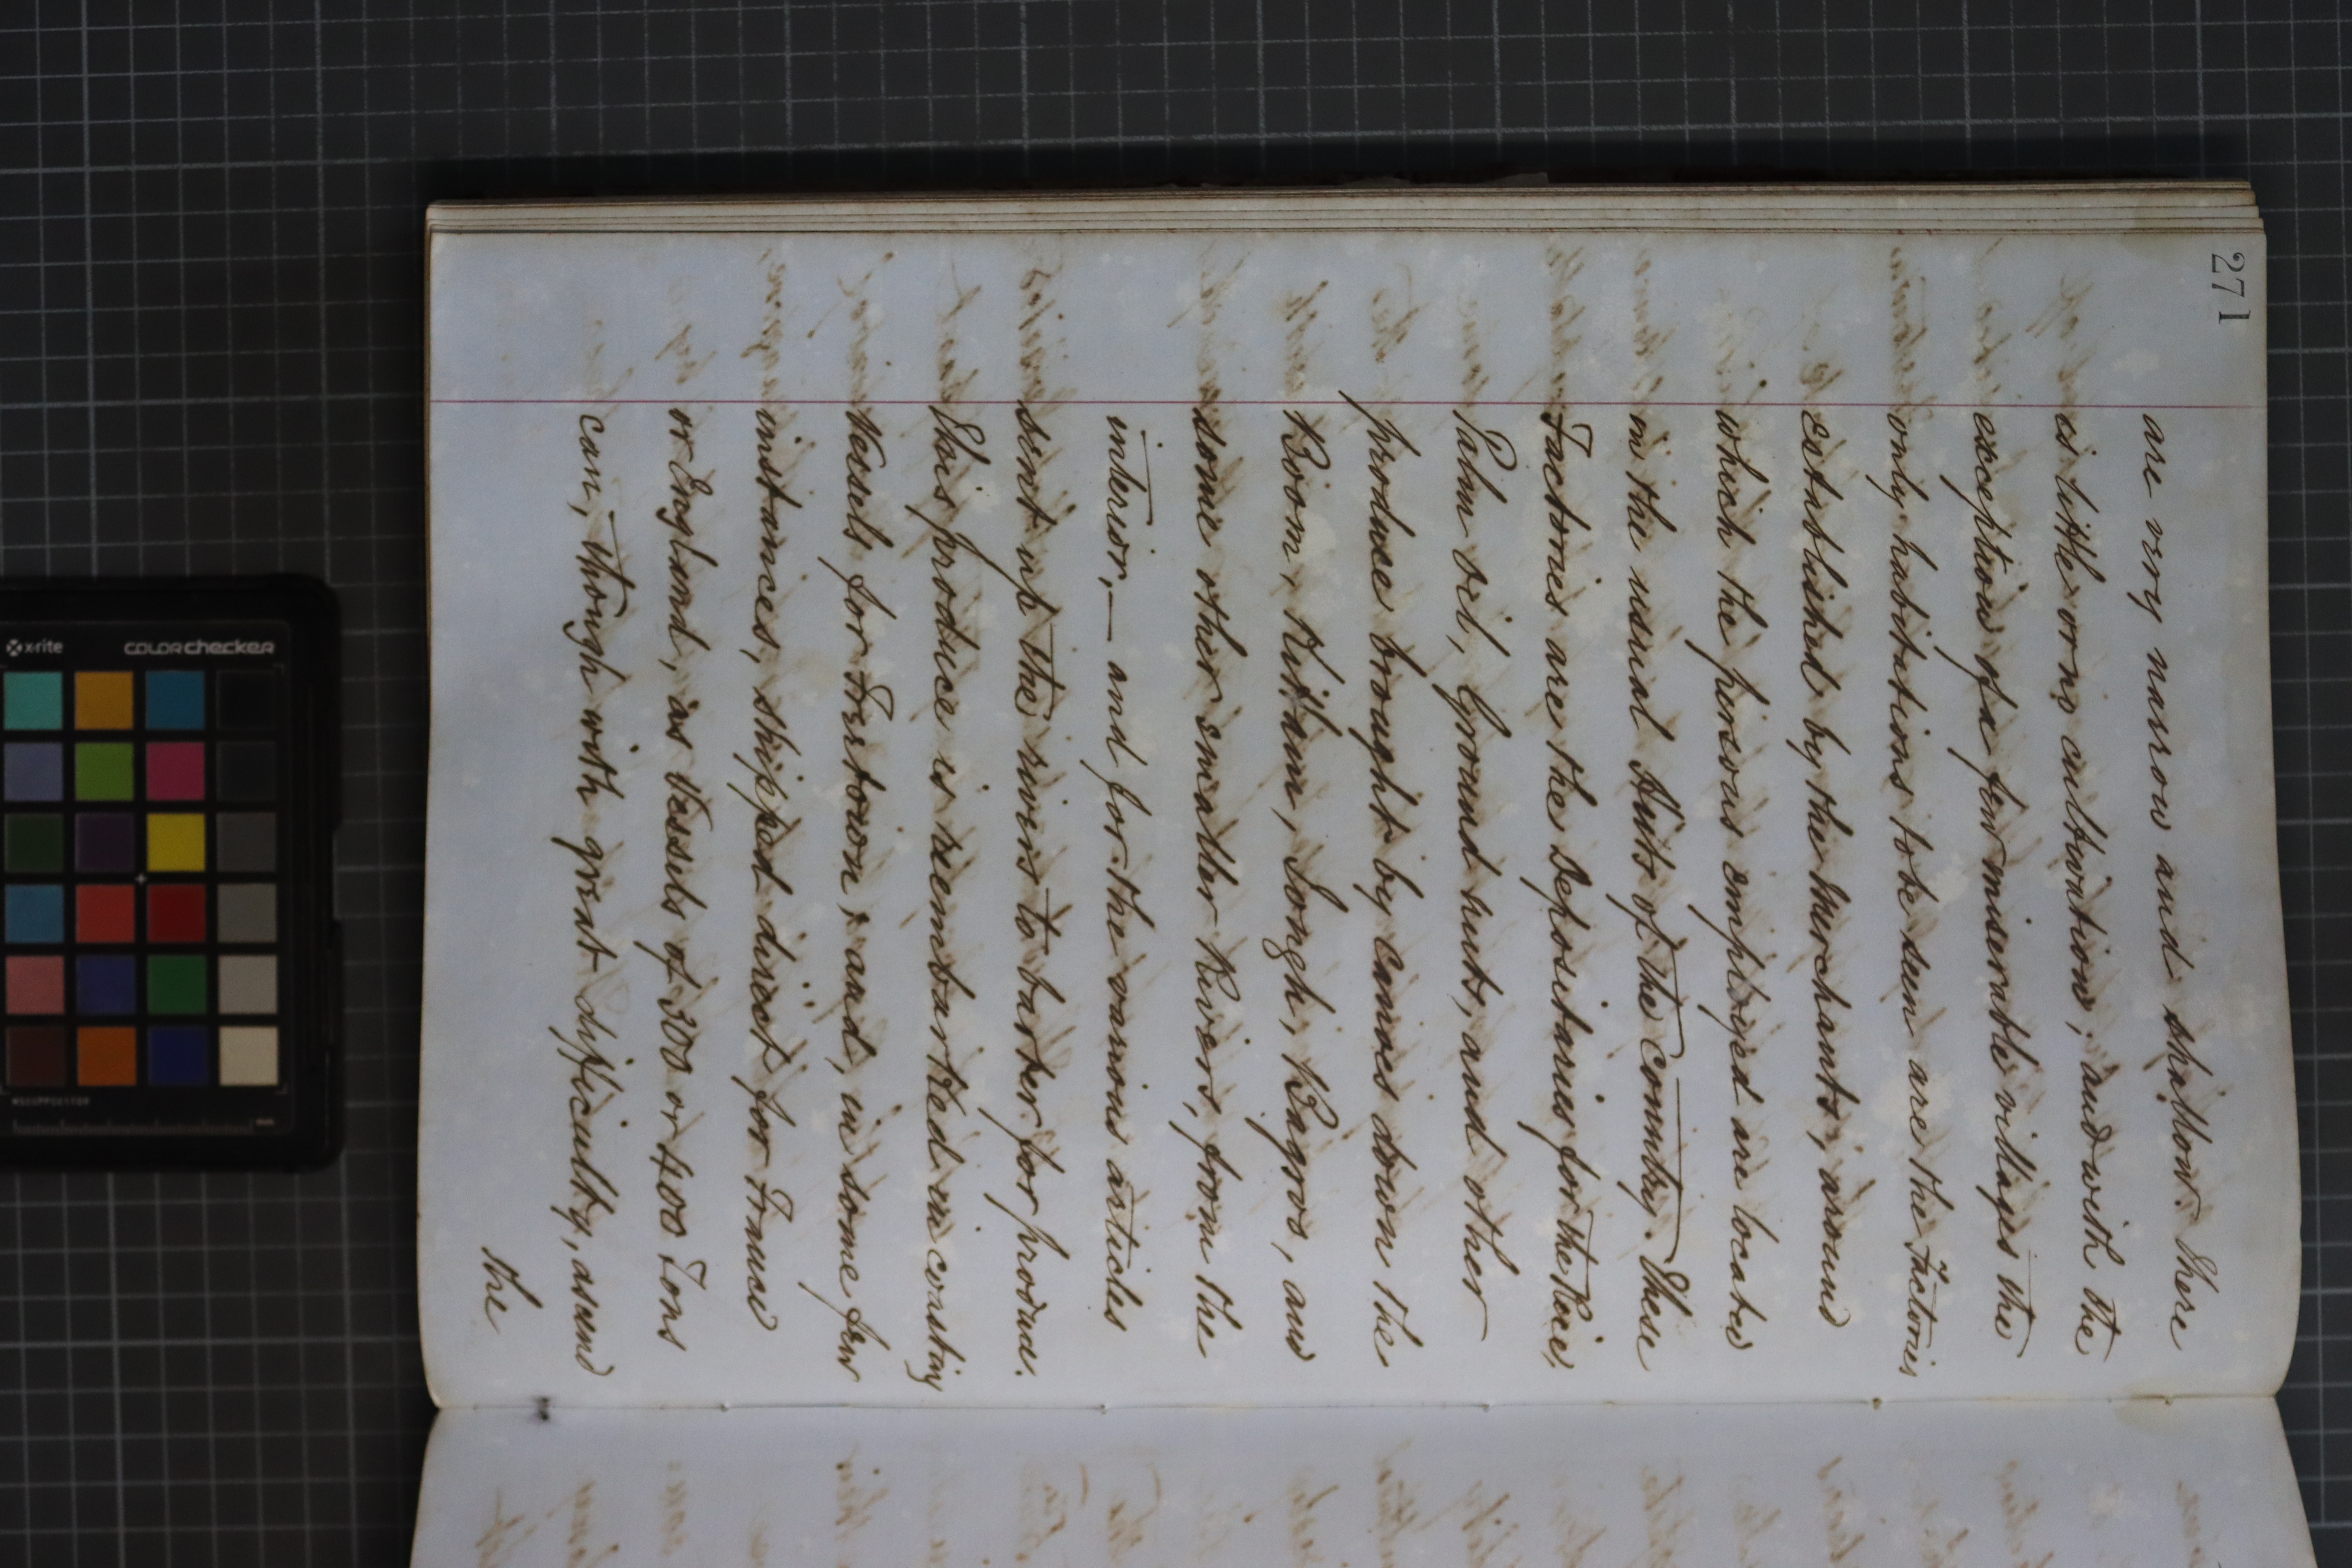 271
are very narrow and shallow. There
is little or no cultivation; and with the
exception of a few miserable villages the
only habitations to be seen are the Factories
established by the Merchants; around
which the persons employed are located
in the usual Huts of the country. These
Factories are the Depositaries for the Rice,
Palm Oil, Ground nuts, and other
produce brought by canoes down the
Boom, Kittam, Jongh, Bagroo, and
some other smaller Rivers, from the
interior,— and for the various articles
sent up the rivers to barter for produce.
This produce is reembarked in coasting
Vessels for Freetown; and, in some few
instances, shipped direct for France
or England, as Vessels of 300 or 400 Tons
can, though with great difficulty, ascend
the
x-rite
colorchecker